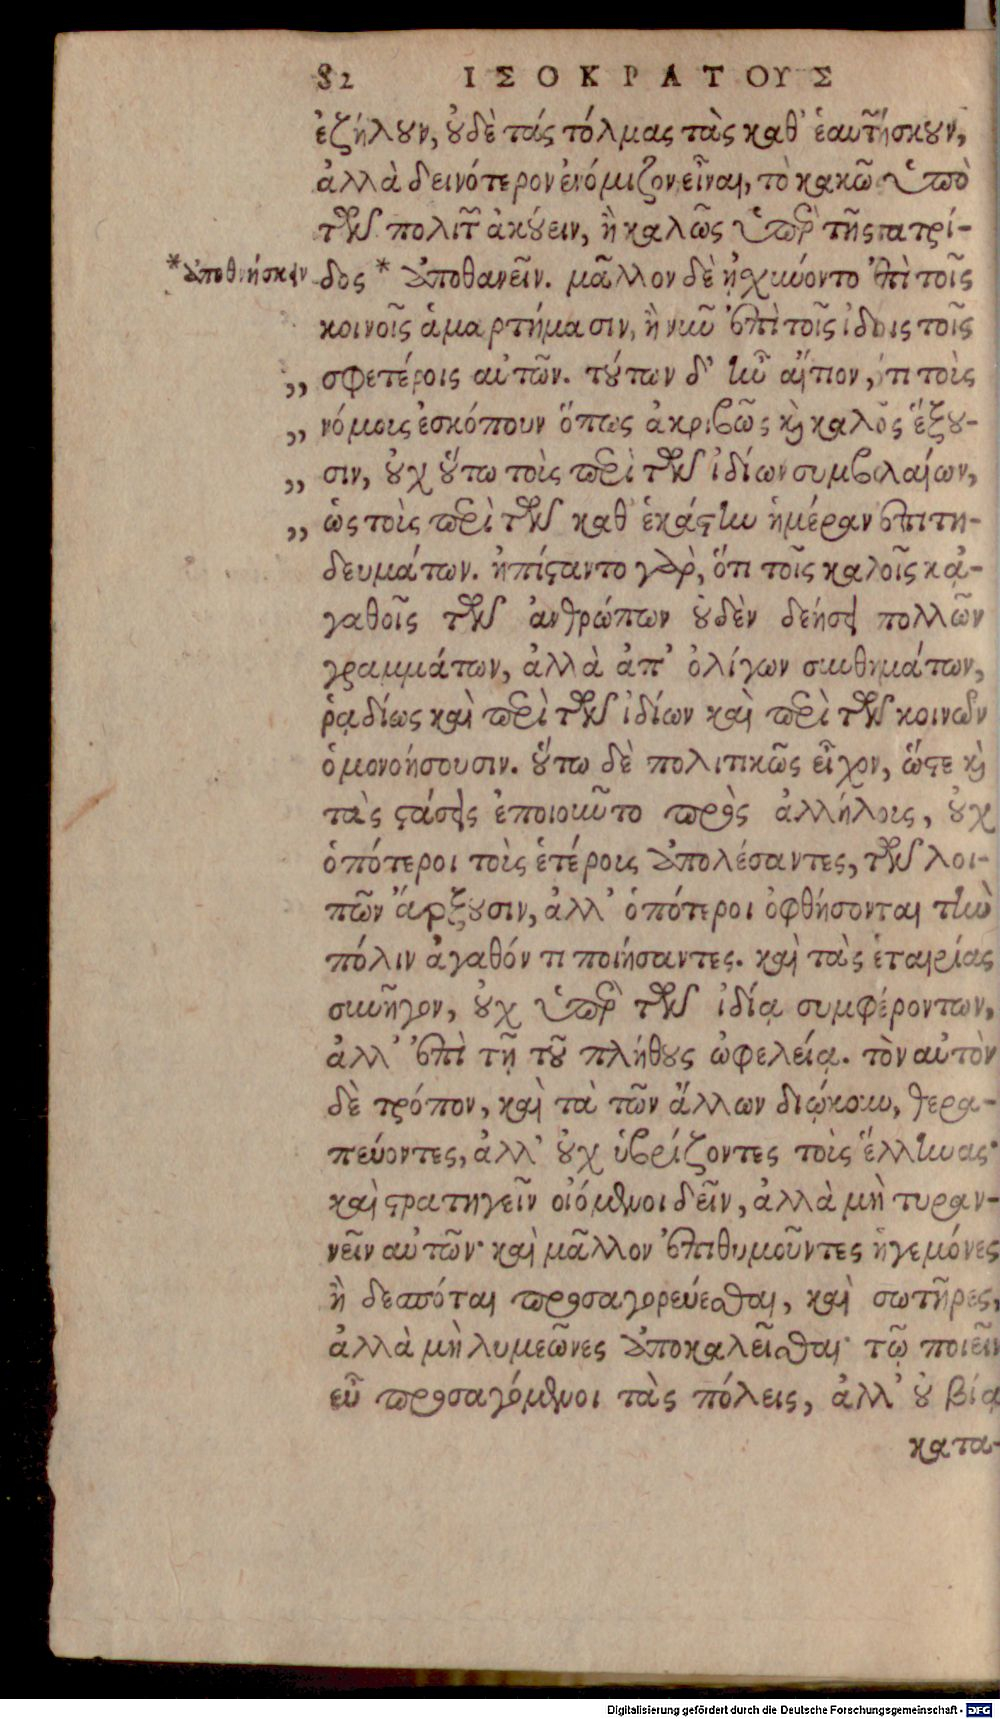 82 ΙΣΟΚΡΑΤΟΥΣ
ἐζήλουν, οὐδὲ τάς τόλμας τὰς καθ᾽ ἑαυτῶν ἤσκουν,
ἀλλὰ δεινότερον ἐνόμιζον εἶναι, τὸ κακῶς ὑπὸ
τῶν πολιτῶν ἀκούειν, ἢ καλῶς ὑπὲρ τῆς πατρί-
*ἀποθνήσκειν
δος * ἀποθανεῖν. μᾶλλον δὲ ᾐσχύνοντο ἐπὶ τοῖς
κοινοῖς ἁμαρτήμασιν, ἢ νῦν ἐπὶ τοῖς ἰδίοις τοῖς
„ σφετέροις αὐτῶν. τούτων δ᾽ ἦν αἴτιον, ὅτι τοὺς
„ νόμους ἐσκόπουν ὅπως ἀκριβῶς καὶ καλῶς ἕξου-
„ σιν, οὐχ οὕτω τοὺς περὶ τῶν ἰδίων συμβολαίων,
„ ὡς τοὺς περὶ τῶν καθ᾽ ἑκάστην ἡμέραν ἐπιτη-
δευμάτων. ἠπίσταντο γὰρ, ὅτι τοῖς καλοῖς κἀ-
γαθοῖς τῶν ἀνθρώπων οὐδὲν δεήσει πολλῶν
γραμμάτων, ἀλλὰ ἀπ᾽ ὀλίγων συνθημάτων,
ῥᾳδίως καὶ περὶ τῶν ἰδίων καὶ περὶ τῶν κοινῶν
ὁμονοήσουσιν. οὕτω δὲ πολιτικῶς εἶχον, ὥστε καὶ
τὰς στάσεις ἐποιοῦντο πρὸς ἀλλήλους, οὐχ
ὁπότεροι τοὺς ἑτέρους ἀπολέσαντες, τῶν λοι-
πῶν ἄρξουσιν, ἀλλ᾽ ὁπότεροι ὀφθήσονται τὴν
πόλιν ἀγαθόν τι ποιήσαντες. καὶ τὰς ἑταιρίας
συνῆγον, οὐχ ὑπὲρ τῶν ἰδίᾳ συμφέροντων,
ἀλλ᾽ ἐπὶ τῇ τοῦ πλήθους ὠφελείᾳ. τὸν αὐτὸν
δὲ τρόπον, καὶ τὰ τῶν ἄλλων διῴκουν, θερα-
πεύοντες, ἀλλ᾽ οὐχ ὑβρίζοντες τοὺς ἕλληνας·
καὶ στρατηγεῖν οἰόμενοι δεῖν, ἀλλὰ μὴ τυραν-
νεῖν αὐτῶν· καὶ μᾶλλον ἐπιθυμοῦντες ἡγεμόνες
ἢ δεσπόται προσαγορεύεσθαι, καὶ σωτῆρες,
ἀλλὰ μὴ λυμεῶνες ἀποκαλεῖσθαι· τῷ ποιεῖν
εὖ προσαγόμενοι τὰς πόλεις, ἀλλ᾽ οὐ βίᾳ
κατα-
Digitalisierung gefördert durch die Deutsche Forschungsgemeinschaft - DFG